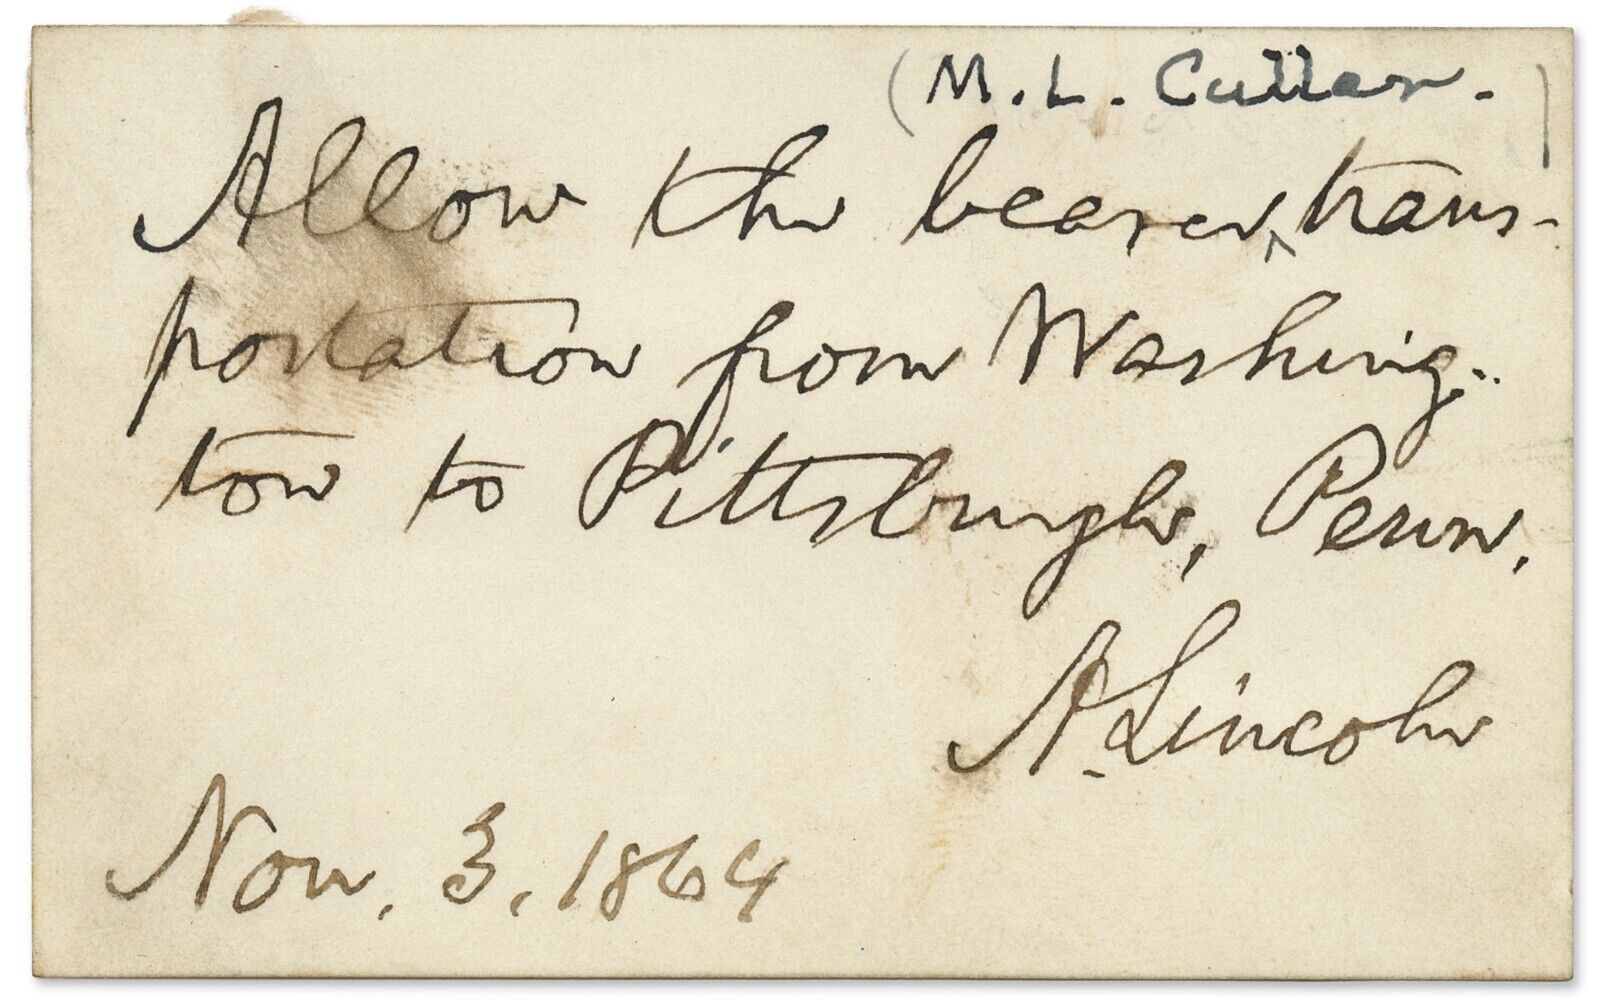 (M. L. Cullen.)
Allow the bearer, trans-
portation from Washing-
ton to Pittsburgh, Penn.
A. Lincoln
Nov. 3, 1864